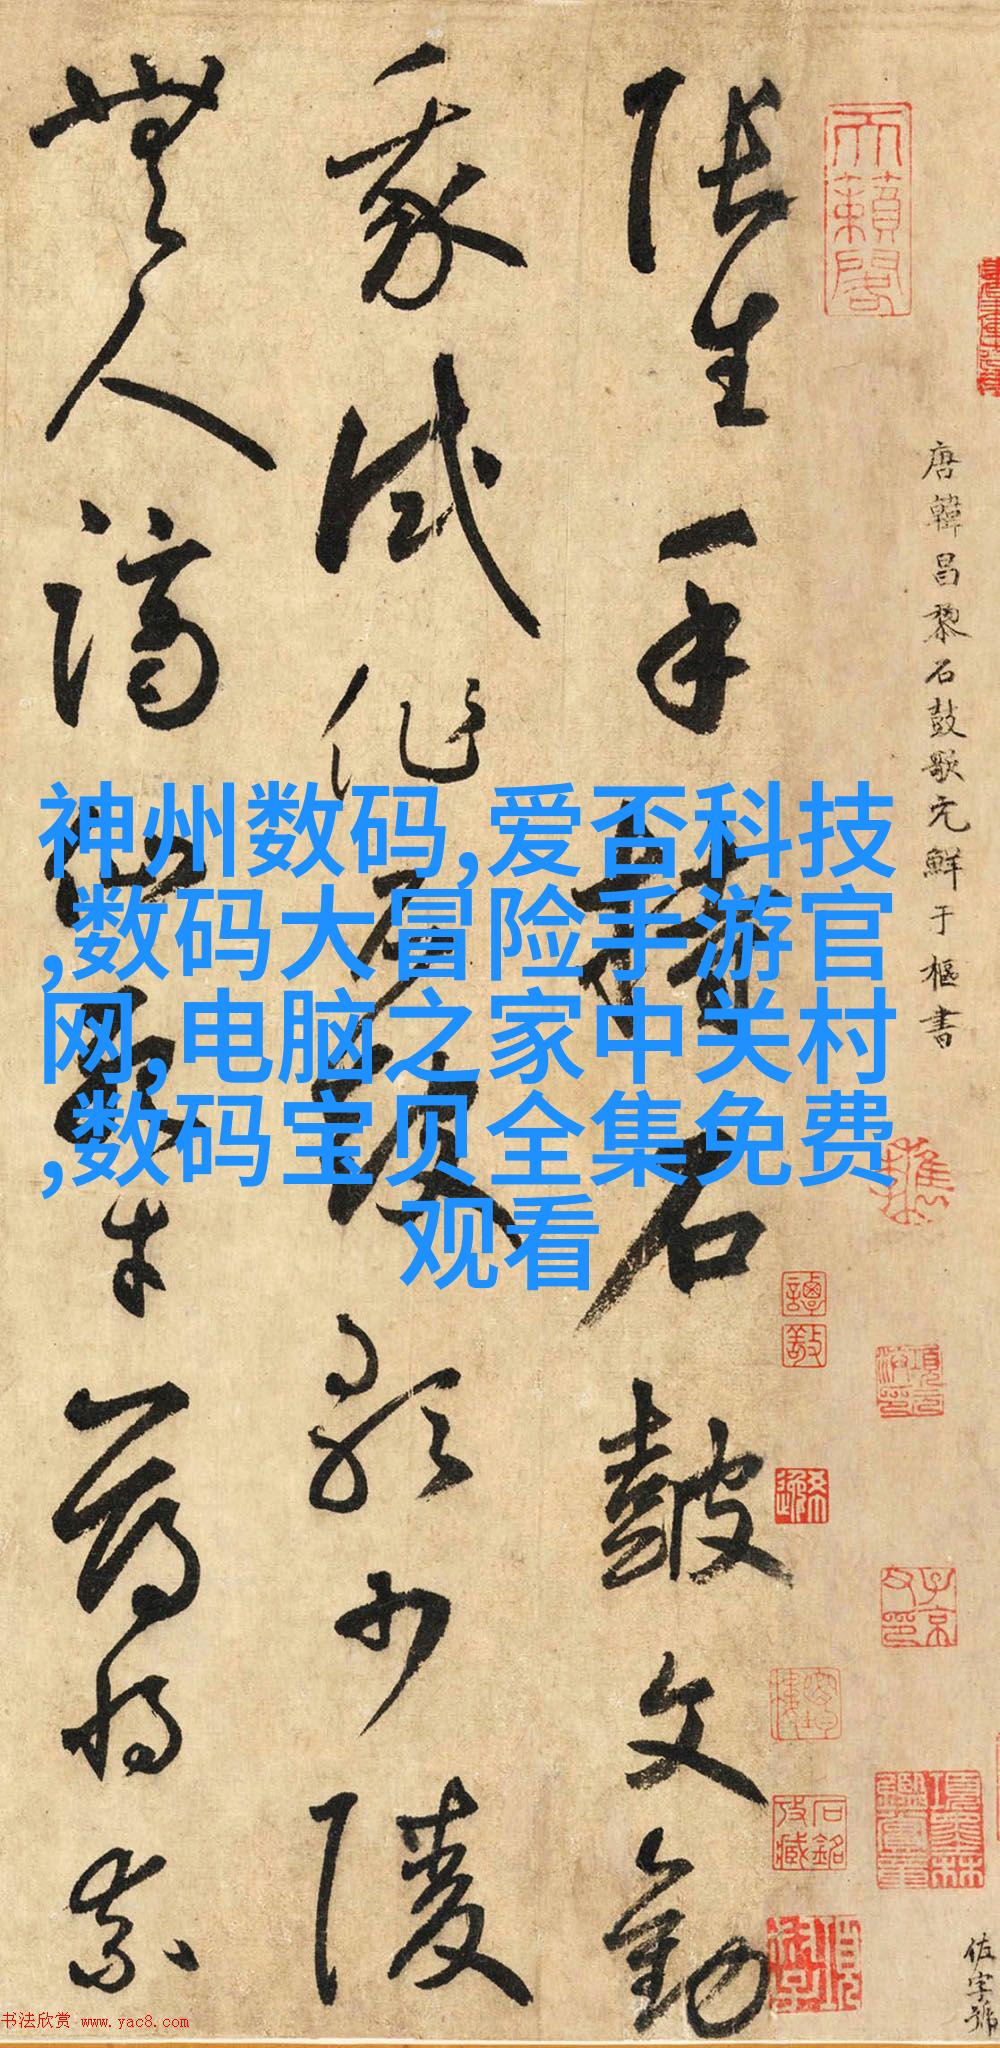 張生手持石鼓文勸
我試作石鼓歌少陵
無人謫仙死才薄將奈
唐韓昌黎石鼓歌元鮮于樞書
天籟閣
神州数码,爱否科技
,数码大冒险手游官
网,电脑之家中关村
,数码宝贝全集免费
观看
佐字號
书法欣赏 www.yac8.com